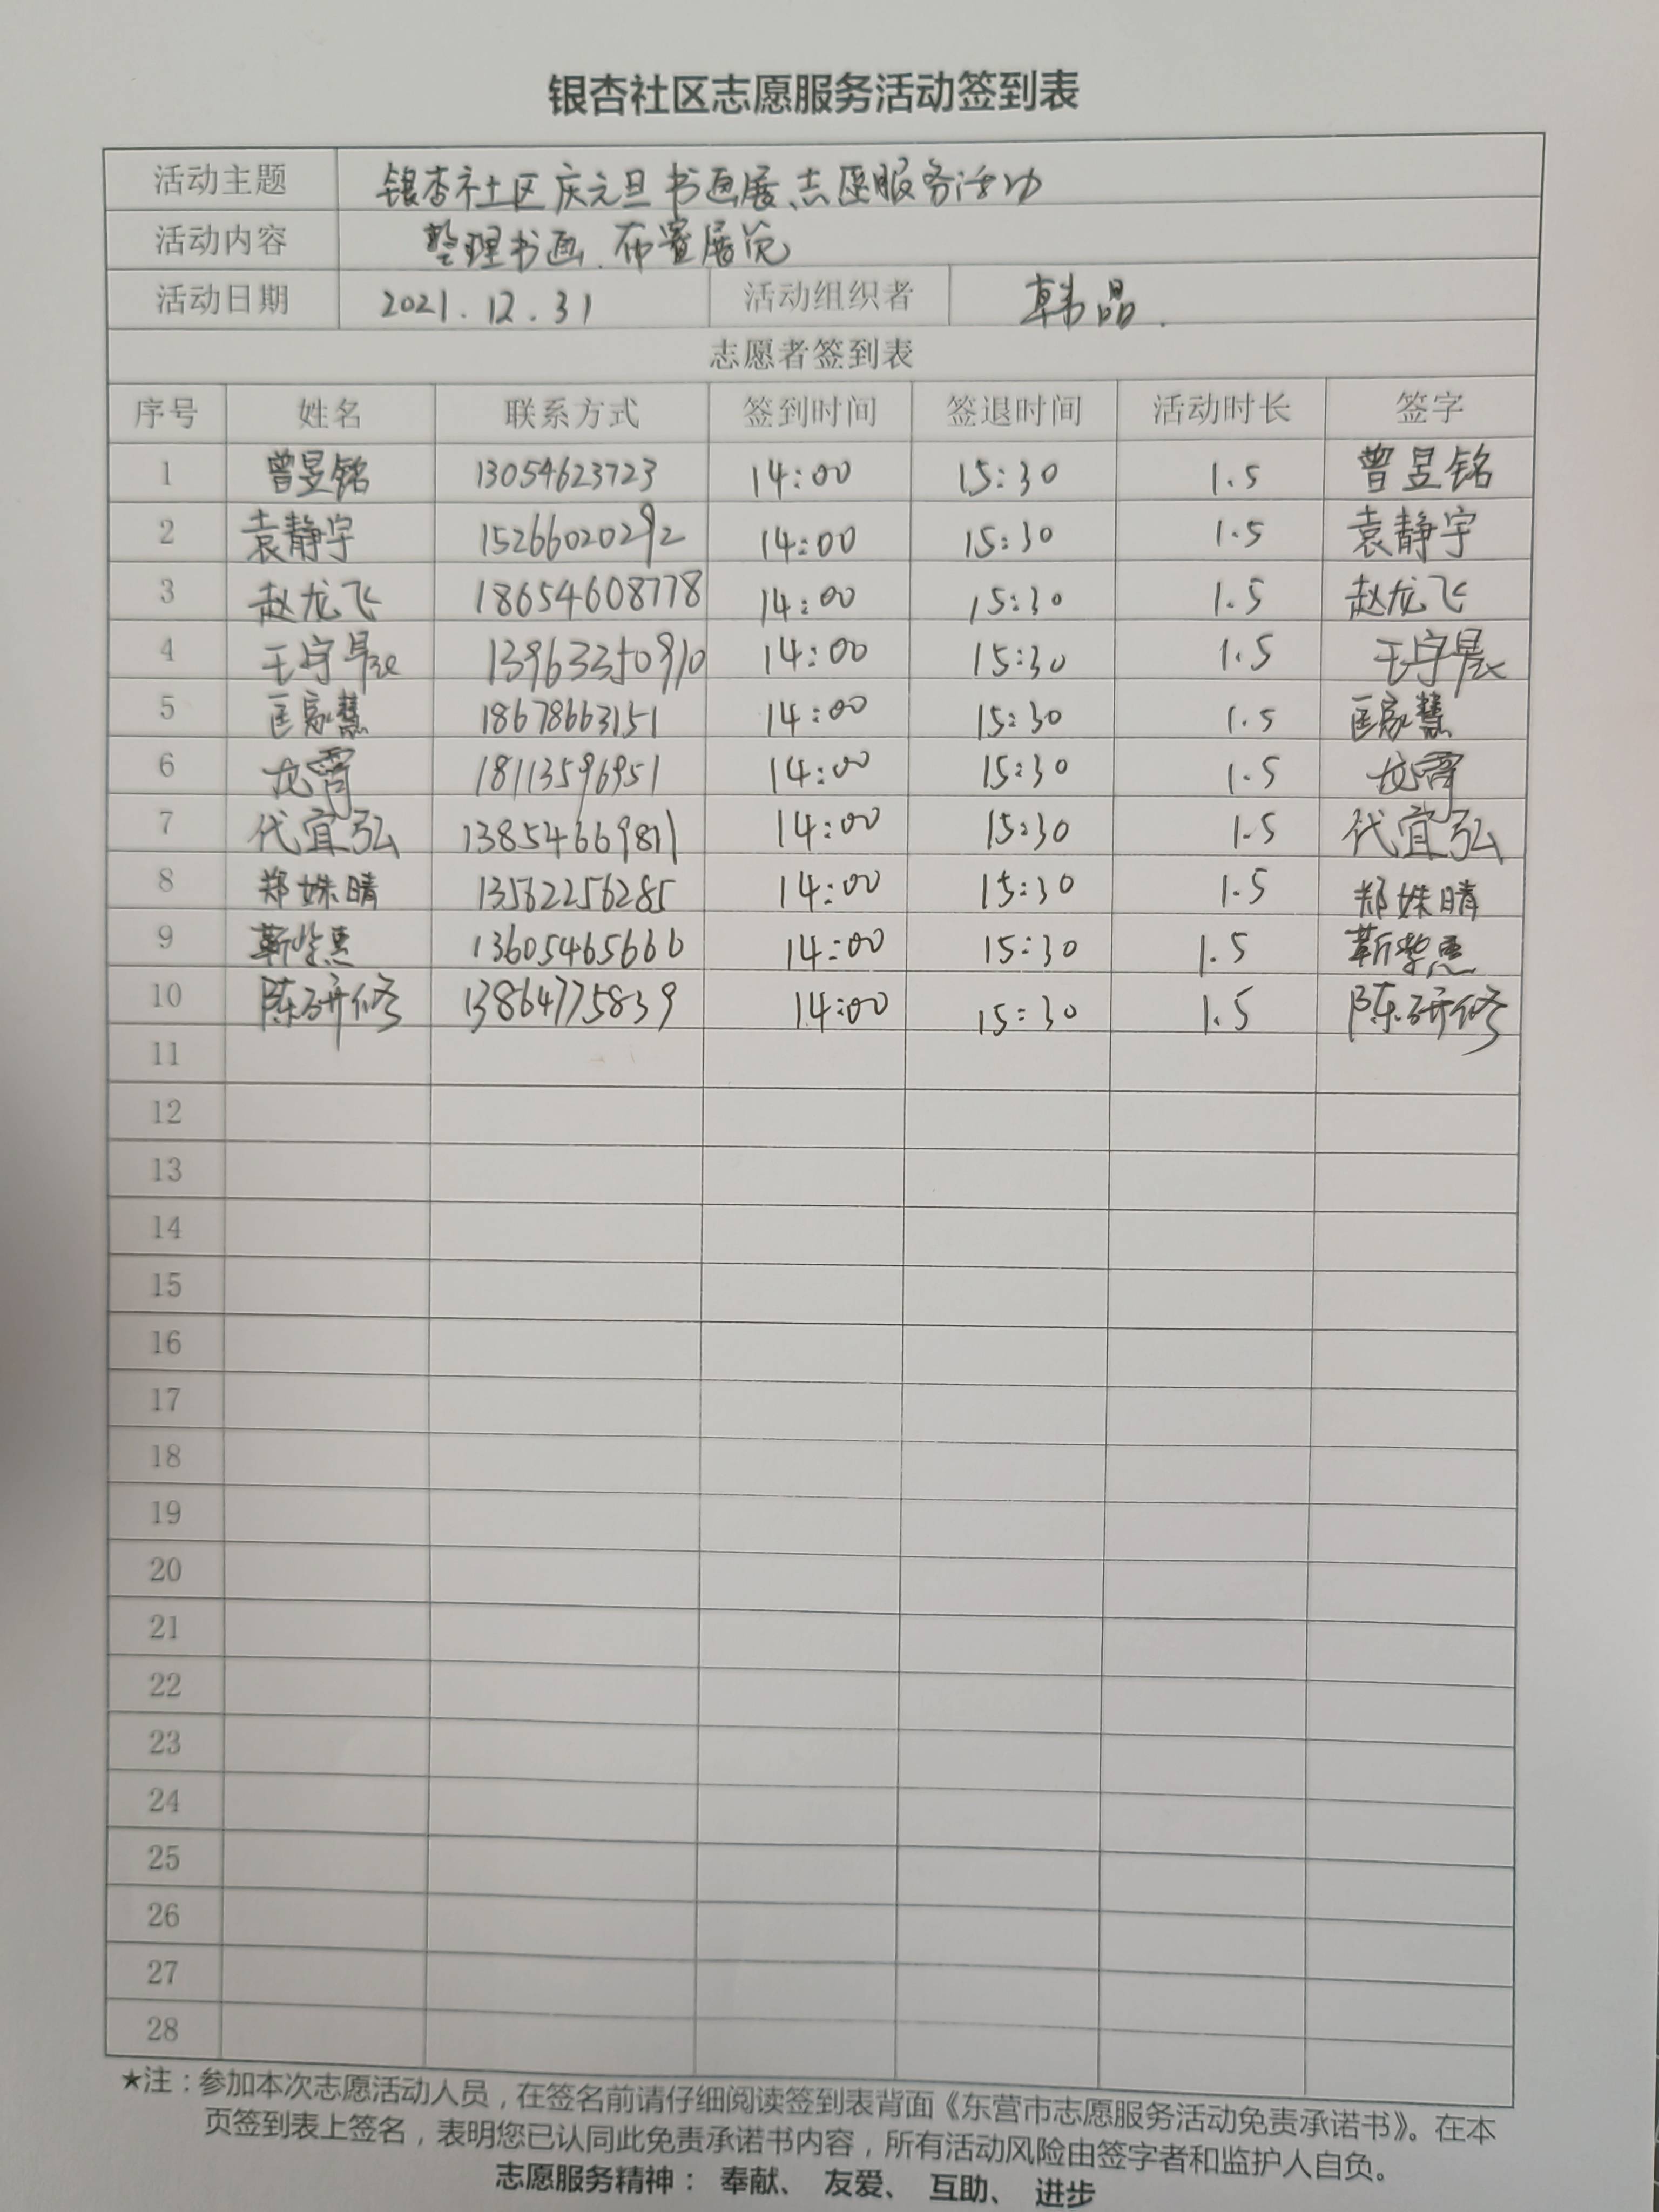 银杏社区志愿服务活动签到表
活动主题 银杏社区庆元旦书画展、志愿服务活动
活动内容 整理书画、布置展览
活动日期 2021.12.31 活动组织者 韩晶.
志愿者签到表
序号 姓名 联系方式 签到时间 签退时间 活动时长 签字
1 曾昱铭 13054623723 14:00 15:30 1.5 曾昱铭
2 袁静宇 15266020292 14:00 15:30 1.5 袁静宇
3 赵龙飞 18654608778 14:00 15:30 1.5 赵龙飞
4 王宇晨 13963350910 14:00 15:30 1.5 王宇晨
5 匡家慧 18678663151 14:00 15:30 1.5 匡家慧
6 龙霄 18113596951 14:00 15:30 1.5 龙霄
7 代宜弘 13854669811 14:00 15:30 1.5 代宜弘
8 郑姝晴 13562256285 14:00 15:30 1.5 郑姝晴
9 13605465666 14:00 15:30 1.5
10 陈研修 13864775839 14:00 15:30 1.5 陈研修
11
12
13
14
15
16
17
18
19
20
21
22
23
24
25
26
27
28
★注：参加本次志愿活动人员，在签名前请仔细阅读签到表背面《东营市志愿服务活动免责承诺书》。在本
页签到表上签名，表明您已认同此免责承诺书内容，所有活动风险由签字者和监护人自负。
志愿服务精神： 奉献、 友爱、 互助、 进步